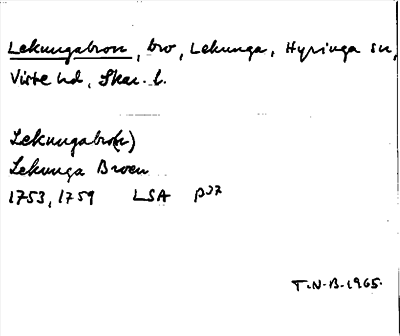 Lekungabron, bro, Lekunga, Hyringa sn,
Viste hd, Skar. l.
Lekungabro(n)
Lekunga Broen
1753, 1759 LSA p37
T.N.B. 1965.